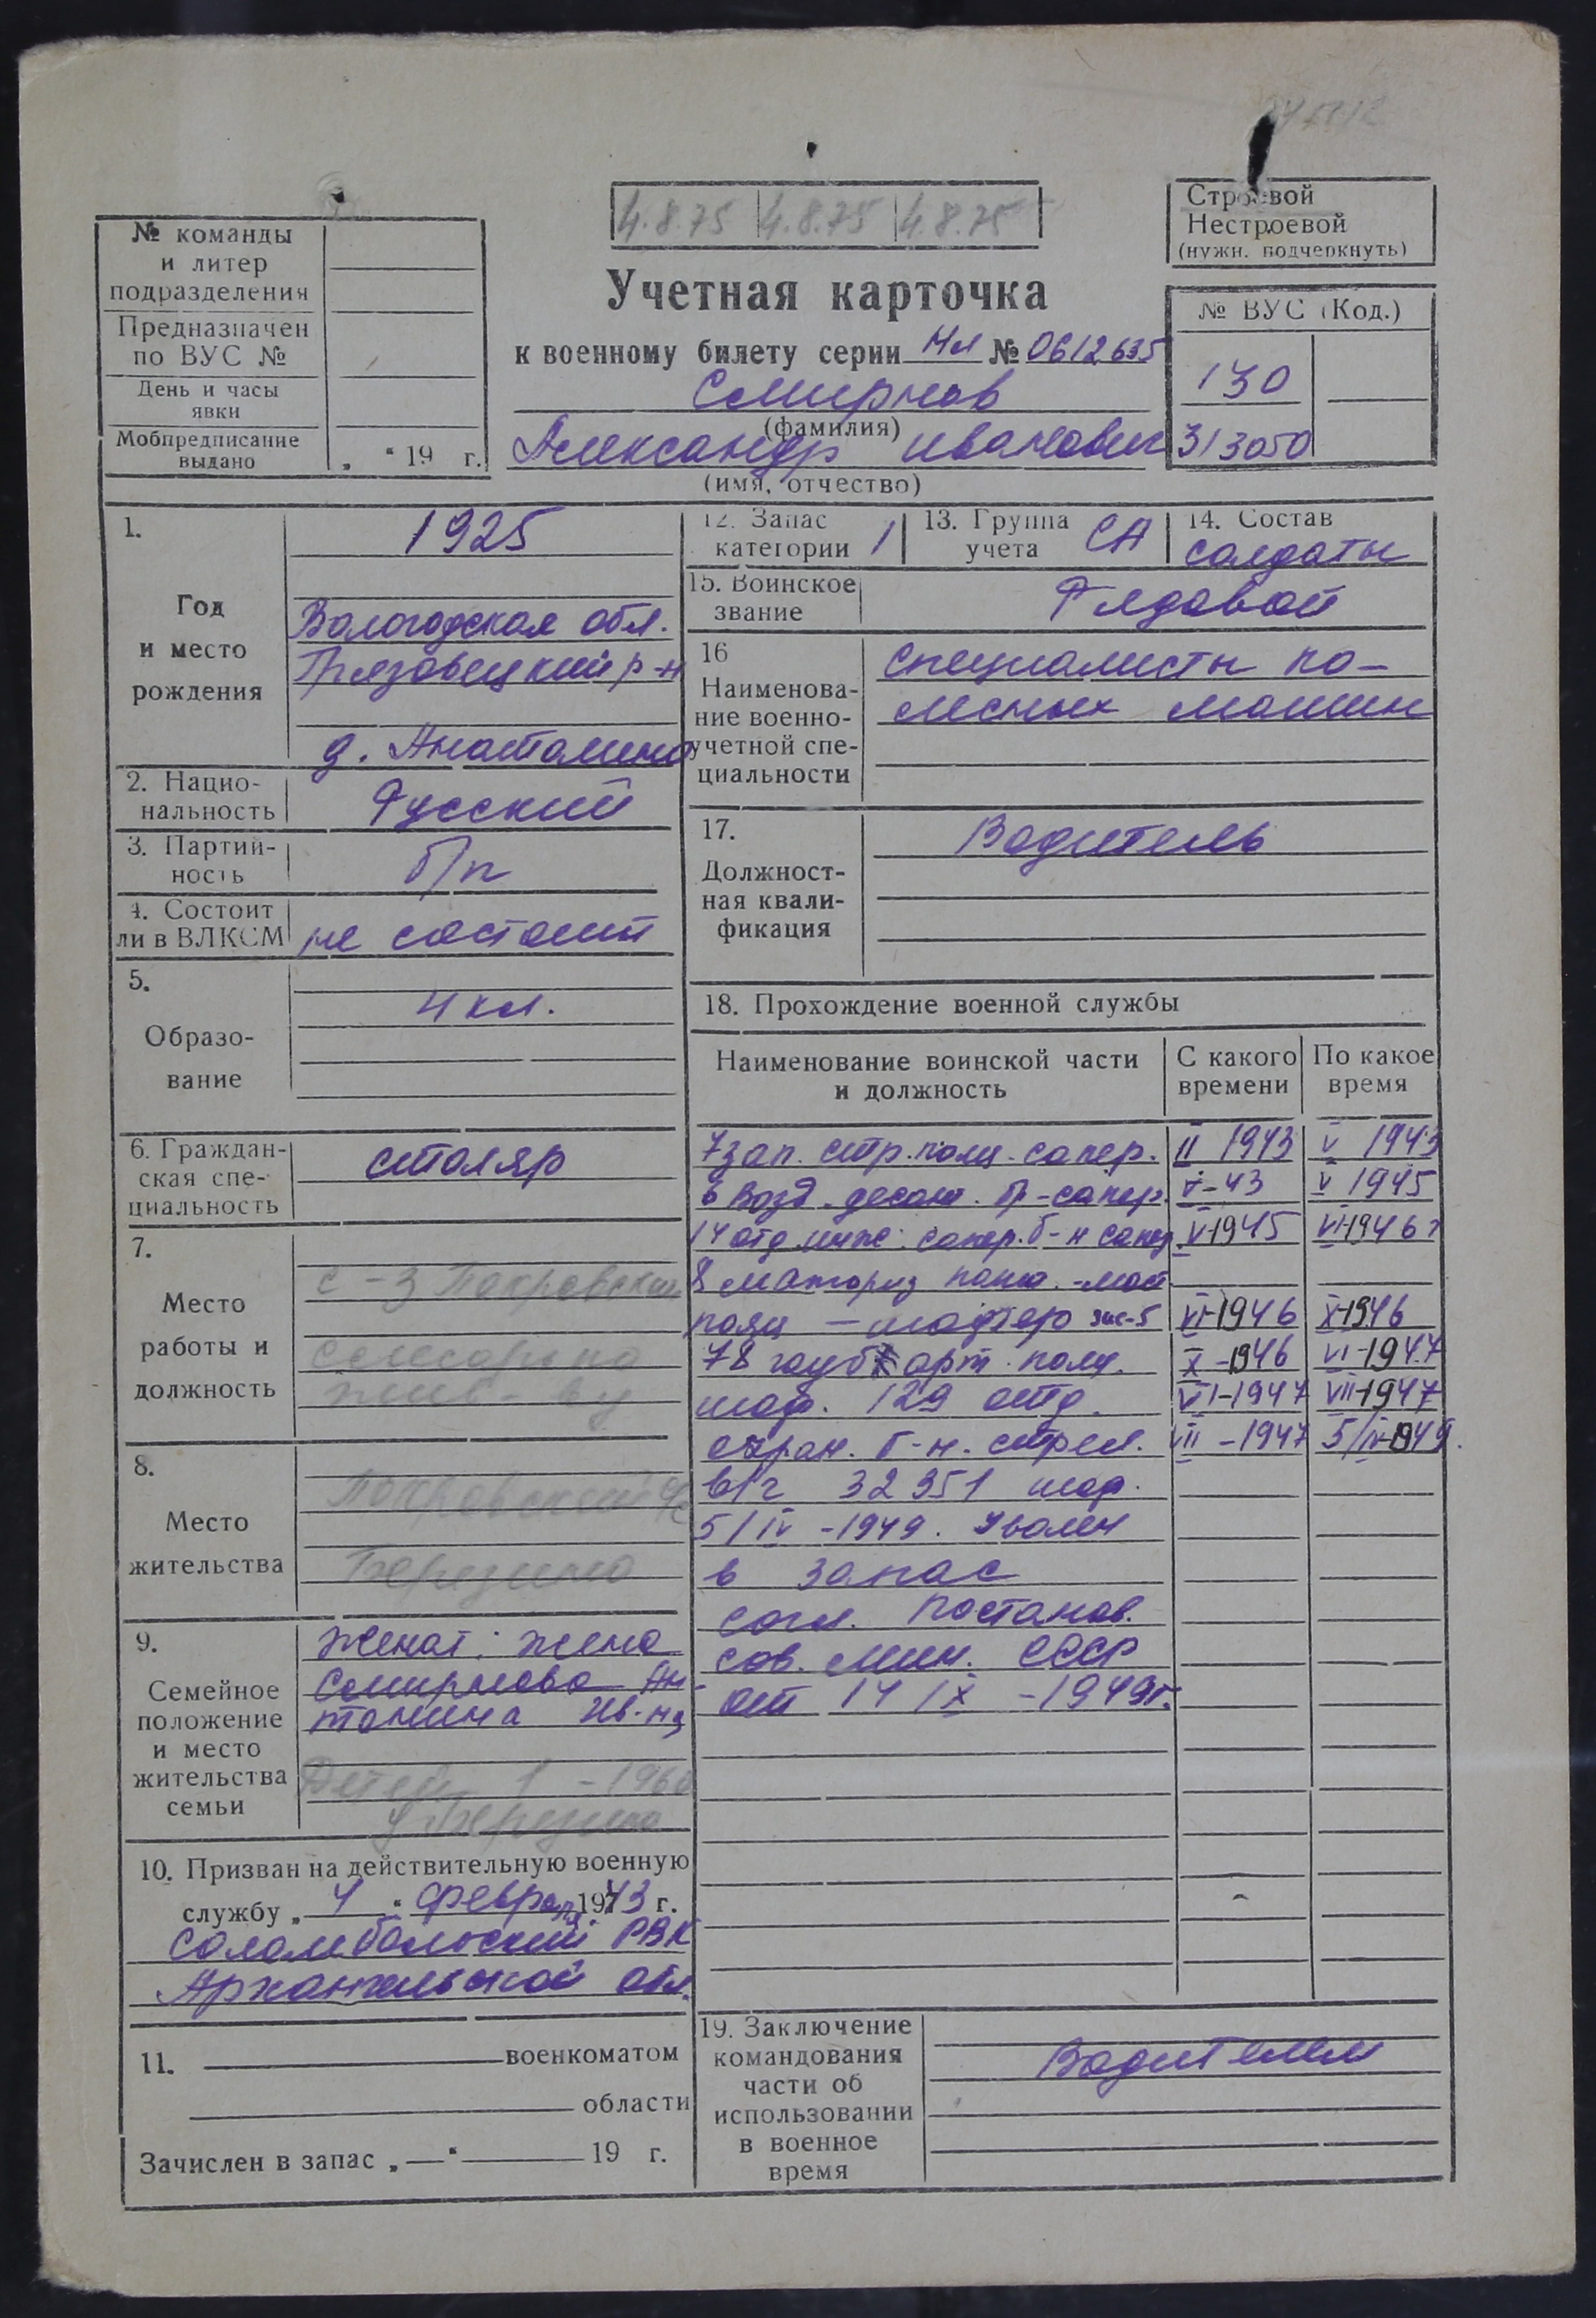 4.8.75 4.8.75 4.8.75
Строевой
Нестроевой
(нужн. подчеркнуть)
№ команды
и литер
подразделения
Предназначен
по ВУС №
День и часы
явки
Мобпредписание
выдано
„ “ 19 г.
Учетная карточка
к военному билету серии НЛ № 0612635
Смирнов
(фамилия)
Александр Иванович
(имя, отчество)
№ ВУС (Код.)
130
313050
1.
Год
и место
рождения
1925
Вологодская обл.
Грязовецкий р-н
д. Анатолино
2. Нацио-
нальность
Русский
3. Партий-
ность
б/п
4. Состоит
ли в ВЛКСМ
не состоит
5.
Образо-
вание
4 кл.
6. Граждан-
ская спе-
циальность
столяр
7.
Место
работы и
должность
с-з Покровский
8.
Место
жительства
Покровский
Березино
9.
Семейное
положение
и место
жительства
семьи
Женат: жена
Смирнова Ан-
тонина Ив-на
Детей 1 -1960
Березино
10. Призван на действительную военную
службу „ 4 “ февраля 1943 г.
Соломбальский РВК
Архангельской обл.
11. военкоматом
области
Зачислен в запас „—“ 19 г.
12. Запас
категории 1
13. Группа
учета СА
14. Состав
солдаты
15. Воинское
звание
Рядовой
16
Наименова-
ние военно-
учетной спе-
циальности
специалисты ко-
лесных машин
17.
Должност-
ная квали-
фикация
Водитель
18. Прохождение военной службы
Наименование воинской части
и должность
С какого
времени
По какое
время
7 зап. стр. полк. сапер. II 1943 V 1943
6 Возд. десант. бр-сапер. V-43 V 1945
14 отд. инж. сапер. б-н сапер. V-1945 VI-1946 г
8 моториз понт.-мост
полк — шофер зис-5 VI-1946 X-1946
78 гауб арт. полк. X-1946 VI-1947
шоф. 129 отд. VI-1947 VII-1947
охран. б-н. стрел. VII-1947 5/IV-1949.
в/ч 32351 шоф.
5/IV-1949. Уволен
в запас
согл. постанов.
сов. мин. СССР
от 14/IX-1949г.
19. Заключение
командования
части об
использовании
в военное
время
Водителем